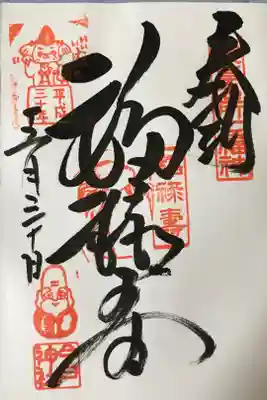 奉拝
福禄寿
平成三十年
三月三十日
福禄寿
今戸神社